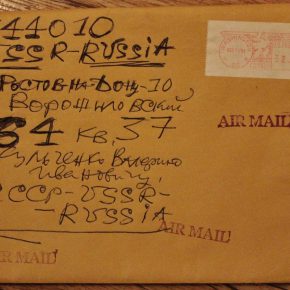 44010
USSR-RUSSIA
Ростов-на-Дону-10
Ворошиловский
84 кв. 37
Ивановичу
СССР-USSR-
-RUSSIA
AIR MAIL
AIR MAIL
AIR MAIL